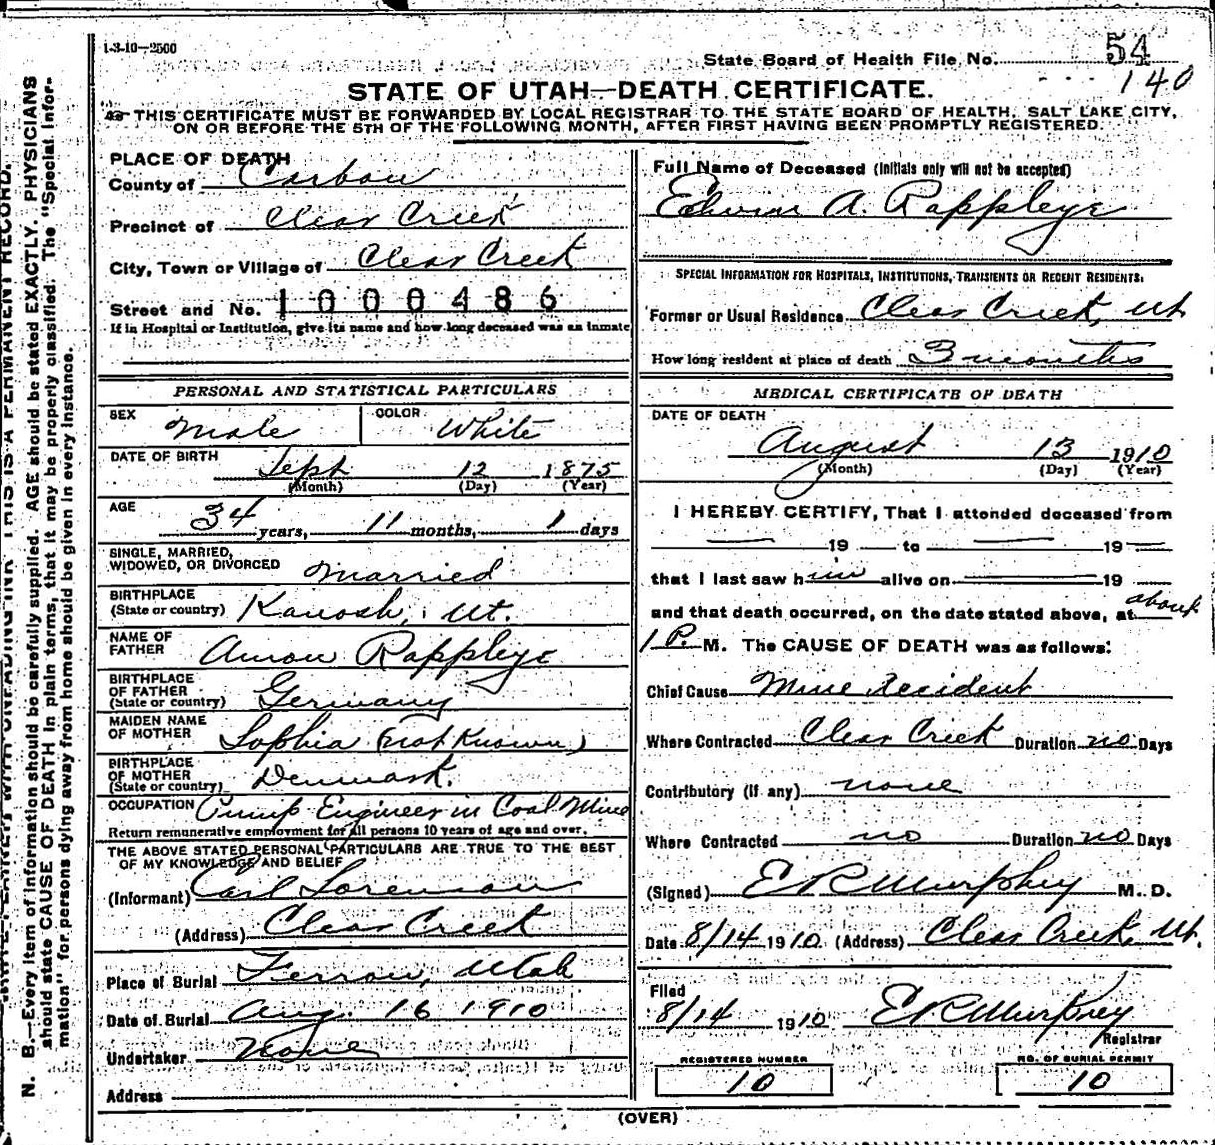 1-3-10—2500
State Board of Health File No. 54
140
STATE OF UTAH—DEATH CERTIFICATE.
THIS CERTIFICATE MUST BE FORWARDED BY LOCAL REGISTRAR TO THE STATE BOARD OF HEALTH, SALT LAKE CITY,
ON OR BEFORE THE 5TH OF THE FOLLOWING MONTH, AFTER FIRST HAVING BEEN PROMPTLY REGISTERED.
PLACE OF DEATH
County of Carbon
Precinct of Clear Creek
City, Town or Village of Clear Creek
Street and No. 1000486
If in Hospital or Institution, give its name and how long deceased was an inmate
PERSONAL AND STATISTICAL PARTICULARS
SEX Male COLOR White
DATE OF BIRTH Sept 12 1875
(Month) (Day) (Year)
AGE 34 years, 11 months, 1 days
SINGLE, MARRIED,
WIDOWED, OR DIVORCED Married
BIRTHPLACE
(State or country) Kanosh, Ut.
NAME OF
FATHER Amon Rappleye
BIRTHPLACE
OF FATHER
(State or country) Germany
MAIDEN NAME
OF MOTHER Sophia (not Known)
BIRTHPLACE
OF MOTHER
(State or country) Denmark.
OCCUPATION Pump Engineer in Coal Mine
Return remunerative employment for all persons 10 years of age and over.
THE ABOVE STATED PERSONAL PARTICULARS ARE TRUE TO THE BEST
OF MY KNOWLEDGE AND BELIEF
(Informant) Carl Sorenson
(Address) Clear Creek
Place of Burial Ferron, Utah
Date of Burial Aug. 16 1910
Undertaker None
Address
Full Name of Deceased (Initials only will not be accepted)
Edwin A. Rappleye
SPECIAL INFORMATION FOR HOSPITALS, INSTITUTIONS, TRANSIENTS OR RECENT RESIDENTS:
Former or Usual Residence Clear Creek, Ut
How long resident at place of death 3 months
MEDICAL CERTIFICATE OF DEATH
DATE OF DEATH
August 13 1910
(Month) (Day) (Year)
I HEREBY CERTIFY, That I attended deceased from
19 to 19
that I last saw him alive on 19
and that death occurred, on the date stated above, at about
1 P. M. The CAUSE OF DEATH was as follows:
Chief Cause Mine Accident
Where Contracted Clear Creek Duration no Days
Contributory (if any) none
Where Contracted no Duration no Days
(Signed) E R Murphey M. D.
Date 8/14 1910 (Address) Clear Creek, Ut.
Filed
8/14 1910 E R Murphey
Registrar
REGISTERED NUMBER
10
NO. OF BURIAL PERMIT
10
(OVER)
N. B.—Every item of information should be carefully supplied. AGE should be stated EXACTLY. PHYSICIANS
should state CAUSE OF DEATH in plain terms, that it may be properly classified. The "Special Infor-
mation" for persons dying away from home should be given in every instance.
THIS IS A PERMANENT RECORD.